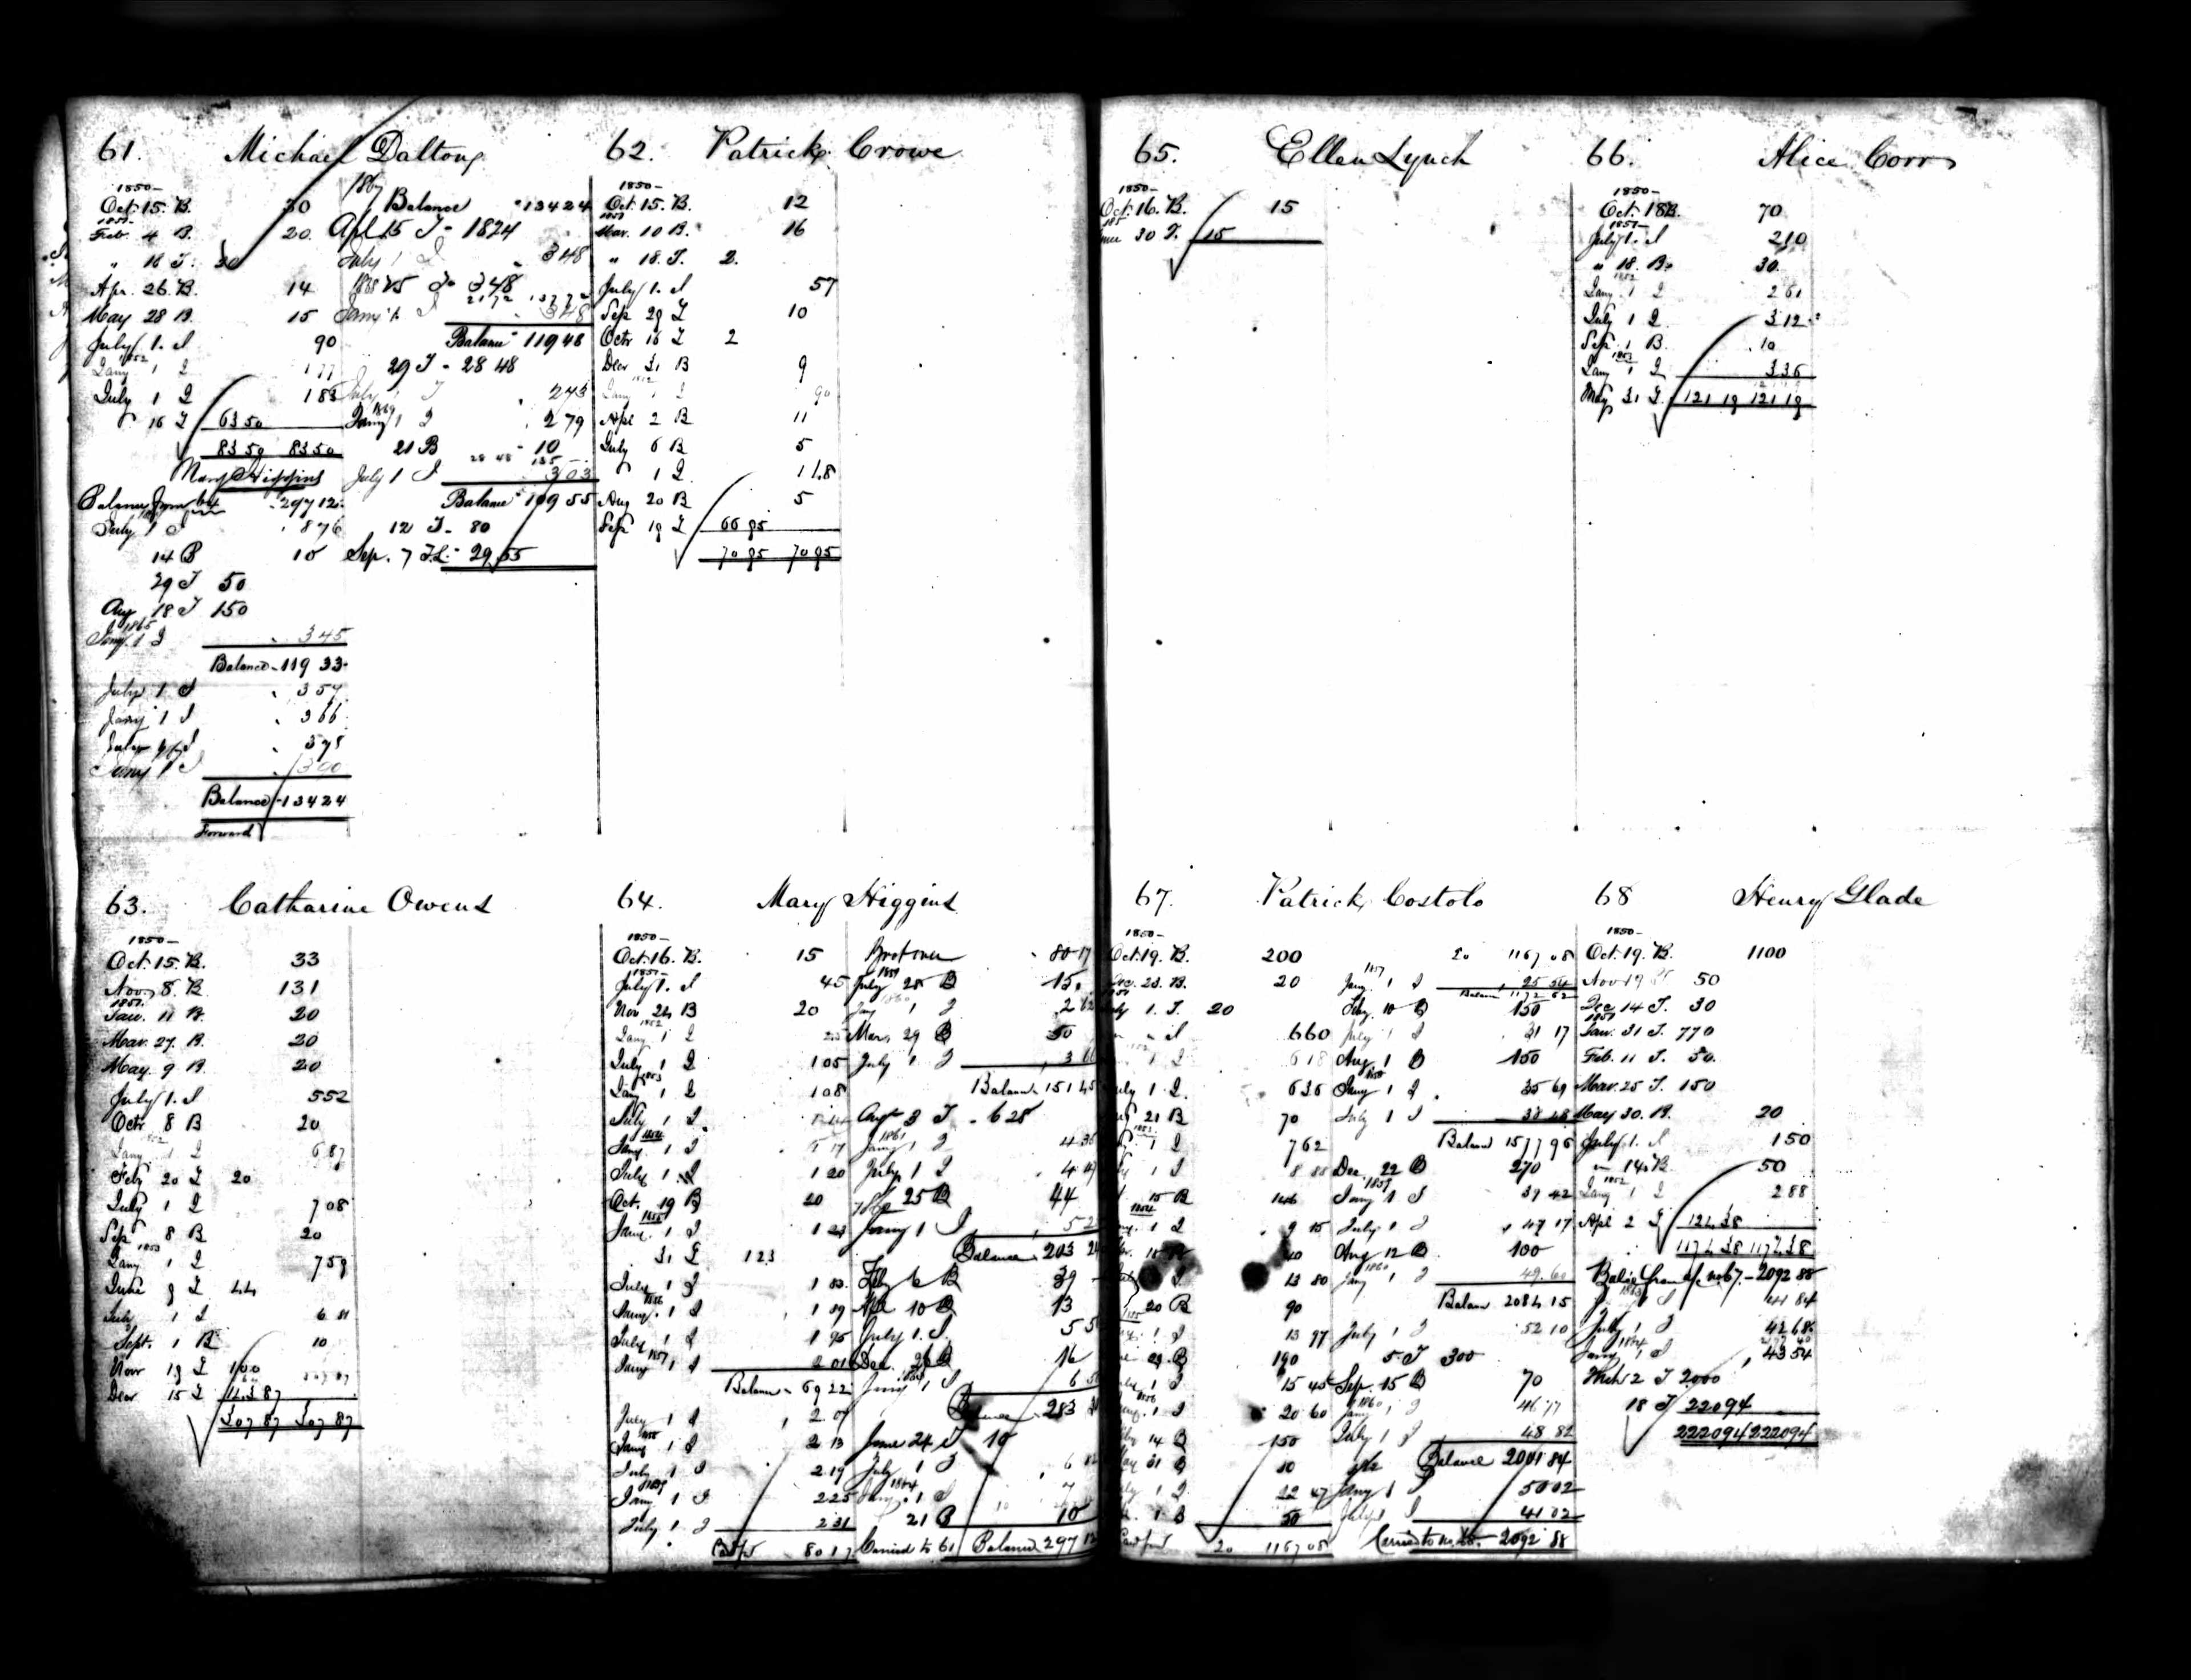 61. Michael Dalton
1850-
Oct. 15. B. 30
1851-
Feb. 4 B. 20
" 18 T. 30
Apr. 26. B. 14
May 28 B. 15
July 1. I 90
1852
Jany 1 I 177
July 1 I 183
" 16 T 6350
8350 8350
Mary Higgins
Balance from 64 297 12
July 1 I 876
14 B 10
29 T 50
Aug 18 T 150
1865
Jany 1 I 345
Balance 119 33
July 1 I 357
Jany 1 I 366
July 1 I 378
Jany 1 I 390
Balance 134 24
Forward
1867
Balance 134 24
Apl 15 T 1824
July 1 I 348
Jany 1 I 348
Balance 119 48
29 T 28 48
July 1 I 243
1869
Jany 1 I 279
21 B 10
July 1 I 303
Balance 109 55
12 T 80
Sep. 7 T. 29 55
62. Patrick Crowe
1850-
Oct. 15. B. 12
1851
Mar. 10 B. 16
" 18. T. 2.
July 1. I 57
Sep 29 I 10
Octr 16 T 2
Decr 31 B 9
Jany 1 I 90
Apl 2 B 11
July 6 B 5
" 1 I 118
Aug 20 B 5
Sep 19 T 66 95
70 95 70 95
63. Catharine Owens
1850-
Oct. 15. B. 33
Nov. 8. B. 131
1851.
Jan. 11 B. 20
Mar. 27. B. 30
May. 9 B. 20
July 1. I 552
Octr 8 B 20
1852
Jany 1 I 687
Feby 20 T 20
July 1 I 708
Sep 8 B 20
1853
Jany 1 I 759
June 9 T 44
July 1 I 6 81
Sept. 1 B 10
Nov 19 T 100
Decr 15 T 143 87
307 87 307 87
64. Mary Higgins
1850-
Oct. 16. B. 15
1851-
July 1. I 45
Nov 24 B 20
1852
Jany 1 I
July 1 I 105
1853
Jany 1 I 108
July 1 I
1854
Jany. 1 I 1 17
July 1 I 1 20
Oct. 19 B 20
1855
Jany. 1 I 1 23
31 T 123
July 1 I 1 83
1856
Jany. 1 I 1 89
July 1 I 1 95
1857
Jany 1 I 2 01
Balance 69 22
July 1 I 2 07
1858
Jany 1 I 2 13
July 1 I 2 19
1859
Jany 1 I 2 25
July 1 I 2 31
Card fd 80 17
Brot over 80 17
1859
July 25 B 15
1860
Jany 1 I 2
Mar. 29 B 50
July 1 I 3
Balance 151 45
Aug 3 T 628
1861
Jany 1 I 4 36
July 1 I 4
25 B 44
Jany 1 I 5
Balance 203
Feby 6 B 39
Apl 10 B 13
July 1. I 5
Dec. 26 B 16
Jany 1 I 6
Balance 283
June 24 T 10
July 1 I 6
1864
Jany. 1 I 7
21 B 10
Carried to 61 Balance 297 12
65. Ellen Lynch
1850-
Oct. 16. B. 15
June 30 T. 15
66. Alice Corr
1850-
Oct. 18 B. 70
1851-
July 1. I 210
" 18. B. 30.
1852
Jany. 1 I 261
July 1 I 312
Sep 1 B 10
1853
Jany 1 I 336
May 31 T 121 19 121 19
67. Patrick Costolo
1850-
Oct. 19. B. 200
Dec. 23. B. 20
July 1. T. 20
" " I 660
1 I 618
July 1 I 636
21 B 70
1 I 762
1 I 8 88
15 B 146
1854
1 I 9 15
13 80
20 B 90
1 I 13 97
29 B 190
1 I 15 45
1856
1 I 20 60
14 B 150
31 B 10
1 I 22 47
1 B 50
Card fd 20 1167 08
20 1167 08
1857
Jany. 1 I 25 54
Balance 1172 62
Feby. 10 B 150
July 1 I 31 17
Aug 1 B 150
1858
Jany 1 I 35 69
July 1 I 38 48
Balance 1577 96
Dec. 22 B 270
1859
Jany 1 I 39 42
July 1 I 47 17
Aug 12 B 100
1860
Jany 1 I 49.60
Balance 2084 15
July 1 I 52 10
5 T 300
Sep. 15 B 70
Jany 1 I 46 77
July 1 I 48 82
Balance 2001 84
Jany 1 I 50 02
July 1 I 41 02
Carried to no. 68. 2092 88
68 Henry Glade
1850-
Oct. 19. B. 1100
Nov 19 50
Dec 14 T. 30
1851
Jan. 31 T. 770
Feb. 11 T. 50.
Mar. 25 T. 150
May 30. B. 20
July 1. I 150
" 14. B. 50
1852
Jany 1 I 288
Apl 2 T 124 38
1174 38 1174 38
Balce from a/c no 67. 2092 88
1863
Jany 1 I 41 84
July 1 I 42 68
1864
Jany 1 I 43 54
Mch 2 T 2000
18 T 220 94
2220 94 2220 94